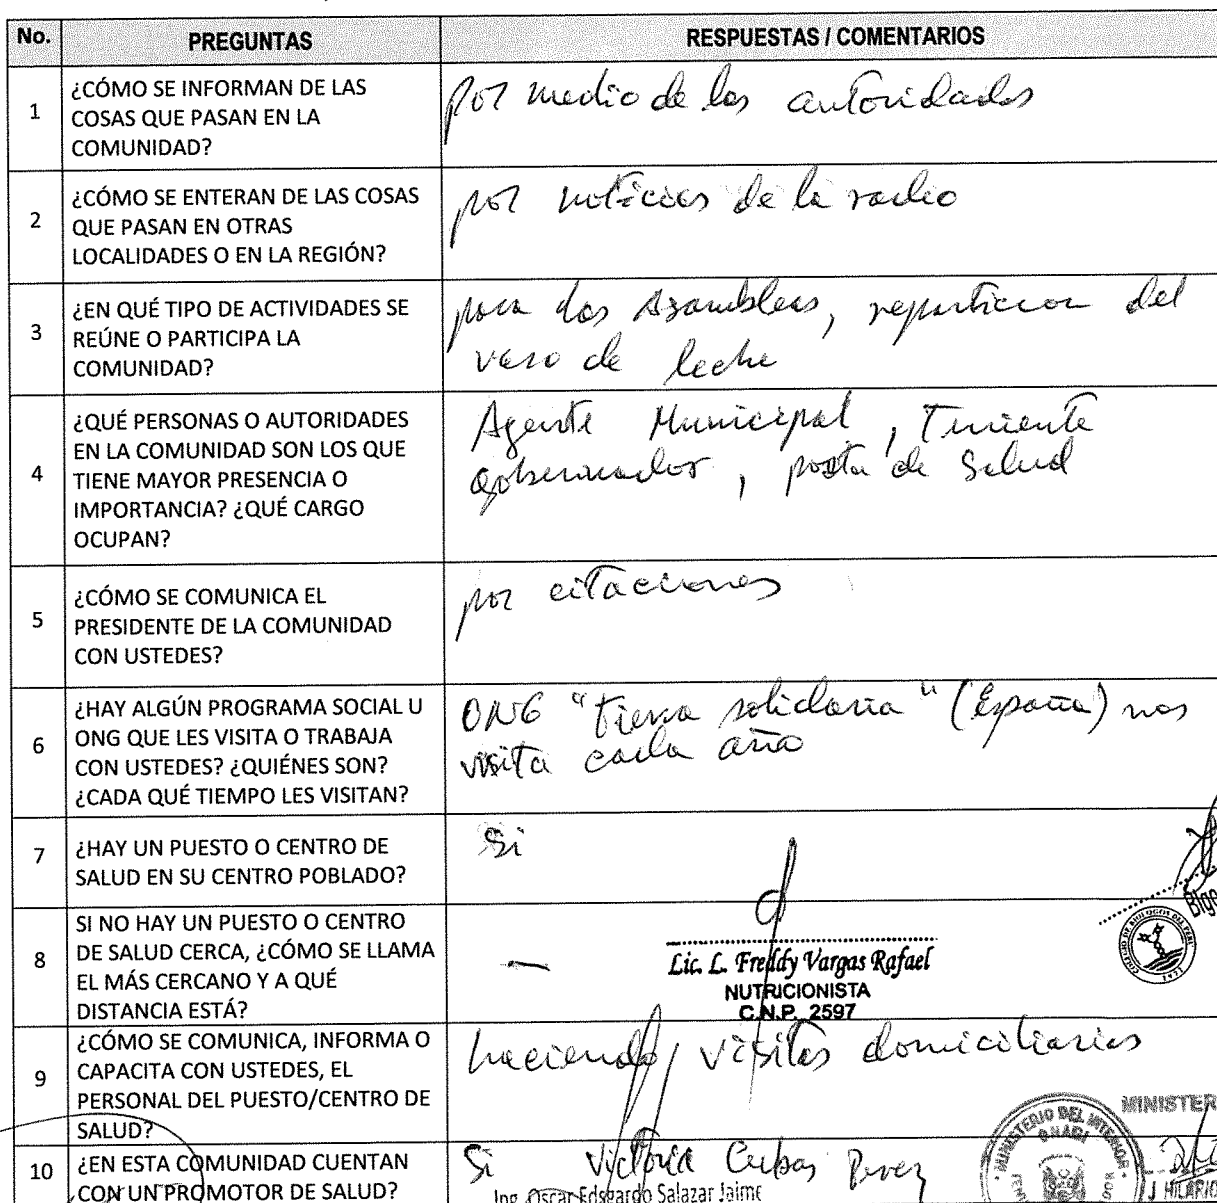 No. PREGUNTAS RESPUESTAS / COMENTARIOS
1 ¿CÓMO SE INFORMAN DE LAS
COSAS QUE PASAN EN LA
COMUNIDAD?
por medio de las autoridades
2 ¿CÓMO SE ENTERAN DE LAS COSAS
QUE PASAN EN OTRAS
LOCALIDADES O EN LA REGIÓN?
por noticias de la radio
3 ¿EN QUÉ TIPO DE ACTIVIDADES SE
REÚNE O PARTICIPA LA
COMUNIDAD?
para las Asambleas, reparticion del
vaso de leche
4 ¿QUÉ PERSONAS O AUTORIDADES
EN LA COMUNIDAD SON LOS QUE
TIENE MAYOR PRESENCIA O
IMPORTANCIA? ¿QUÉ CARGO
OCUPAN?
Agente Municipal, Teniente
gobernador, posta de Salud
5 ¿CÓMO SE COMUNICA EL
PRESIDENTE DE LA COMUNIDAD
CON USTEDES?
por citaciones
6 ¿HAY ALGÚN PROGRAMA SOCIAL U
ONG QUE LES VISITA O TRABAJA
CON USTEDES? ¿QUIÉNES SON?
¿CADA QUÉ TIEMPO LES VISITAN?
ONG "tierra solidaria" (España) nos
visita cada año
7 ¿HAY UN PUESTO O CENTRO DE
SALUD EN SU CENTRO POBLADO?
Si
8 SI NO HAY UN PUESTO O CENTRO
DE SALUD CERCA, ¿CÓMO SE LLAMA
EL MÁS CERCANO Y A QUÉ
DISTANCIA ESTÁ?
—
Lic. L. Freddy Vargas Rafael
NUTRICIONISTA
C.N.P. 2597
9 ¿CÓMO SE COMUNICA, INFORMA O
CAPACITA CON USTEDES, EL
PERSONAL DEL PUESTO/CENTRO DE
SALUD?
haciendo visitas domiciliarias
MINISTER
MINISTERIO DEL INTERIOR
ONAGI
10 ¿EN ESTA COMUNIDAD CUENTAN
CON UN PROMOTOR DE SALUD?
Si Victoria Cubas Perez
Ing. Oscar Edsgardo Salazar Jaime